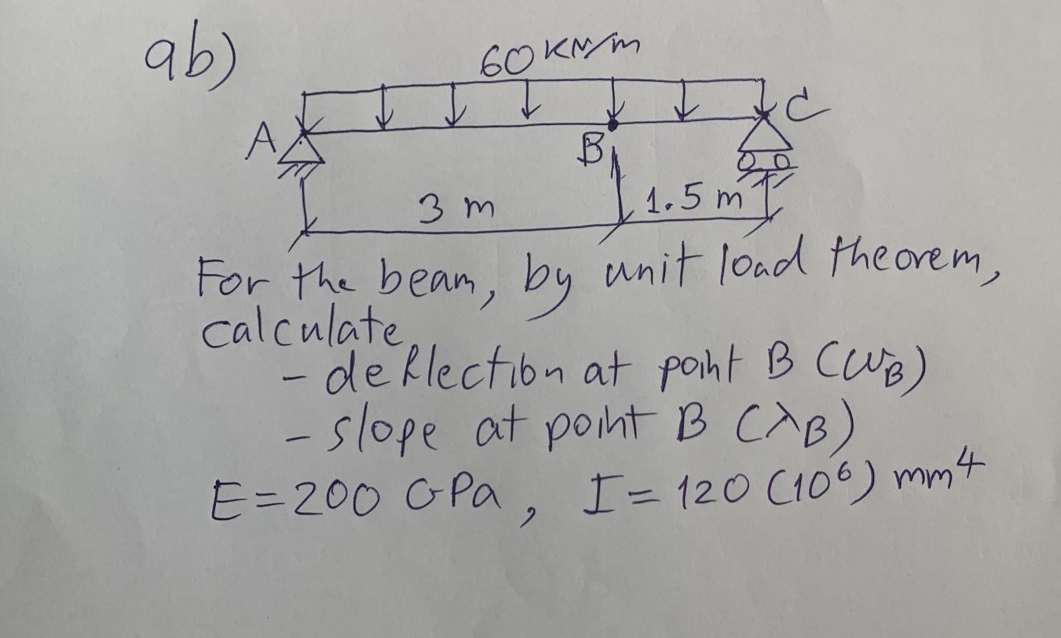 ab)
60 KN/m
A
B
C
3 m
1.5 m
For the beam, by unit load theorem,
calculate
- deflection at point B (ωB)
- slope at point B (λB)
E=200 GPa, I=120 (10⁶) mm⁴